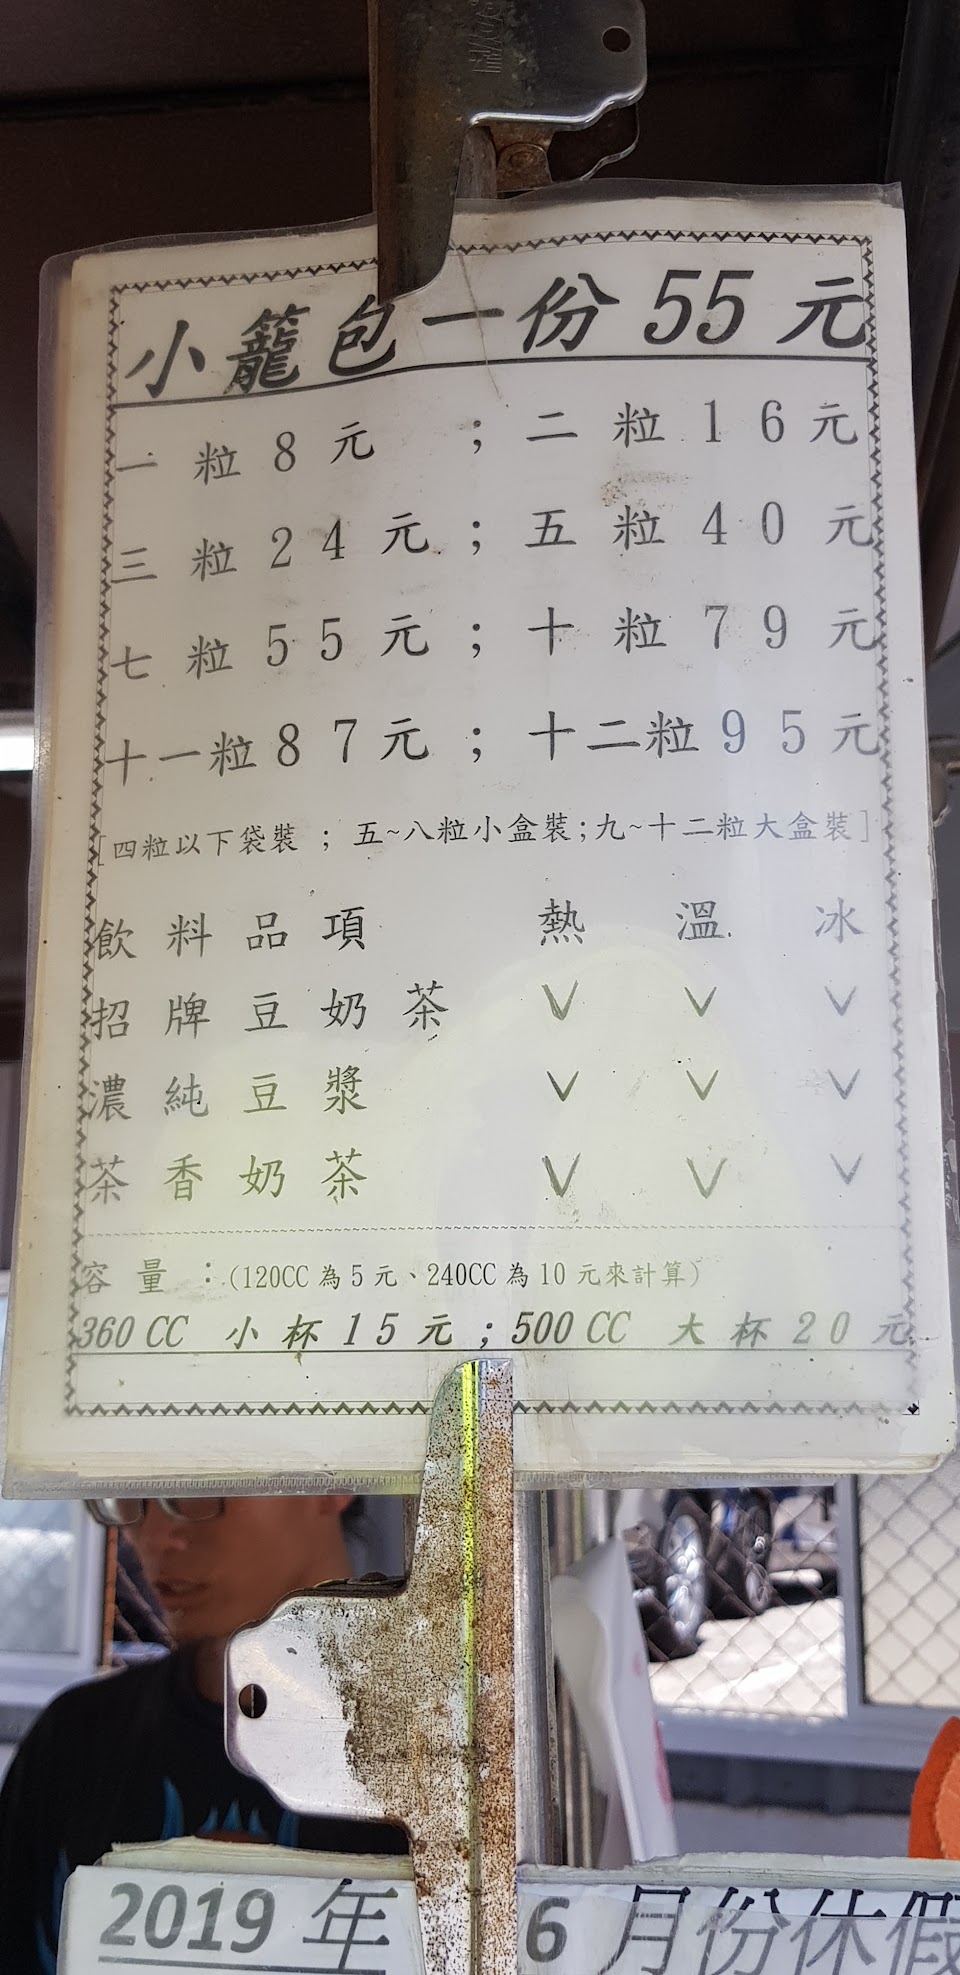 小籠包一份55元
一粒8元 ; 二粒16元
三粒24元 ; 五粒40元
七粒55元 ; 十粒79元
十一粒87元 ; 十二粒95元
[四粒以下袋裝 ; 五~八粒小盒裝;九~十二粒大盒裝]
飲料品項 熱 溫 冰
招牌豆奶茶 V V V
濃純豆漿 V V V
茶香奶茶 V V V
容量:(120CC為5元、240CC為10元來計算)
360CC 小杯15元;500CC 大杯20元
2019年 6月份休假